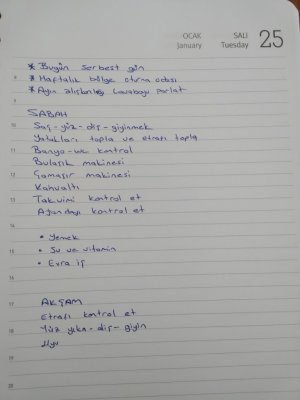 OCAK
January
SALI
Tuesday
25
* Bugün serbest gün
8 * Haftalık bölge oturma odası
* Ayın alışkanlığı Lavaboyu parlat
9
SABAH
10 Saç-yüz-diş-giyinmek
Yatakları topla ve etrafı topla
11 Banyo-wc kontrol
Bulaşık makinesi
12 Çamaşır makinesi
Kahvaltı
13 Takvimi kontrol et
Ajandayı kontrol et
14
• Yemek
15 • Su ve vitamin
• Evra iş
16
17 AKŞAM
Etrafı kontrol et
18 Yüz yıka-diş-giyin
Uyu
19
20